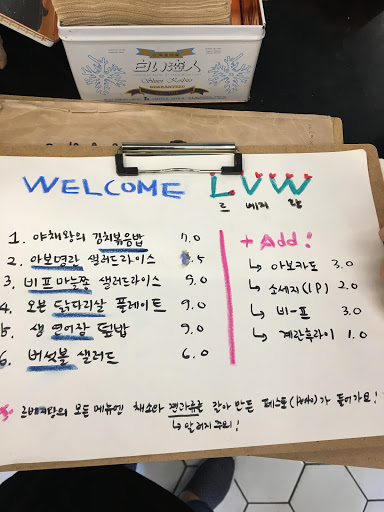 白い恋人
Shiroi Koibito
GUARANTEED
WELCOME LVW
르 베지 왕
1. 야채왕의 김치볶음밥 7.0
2. 아보명란 샐러드라이스 .5
3. 비프마늘쫑 샐러드라이스 9.0
4. 오븐 닭다리살 플레이트 9.0
5. 생 연어장 덮밥 9.0
6. 버섯볼 샐러드 6.0
+ Add!
↳ 아보카도 3.0
↳ 소세지(1P) 2.0
↳ 비-프 3.0
↳ 계란후라이 1.0
르베지왕의 모든 메뉴엔 채소와 견과류를 갈아 만든 페스토가 들어가요!
↳ 알러지주의!